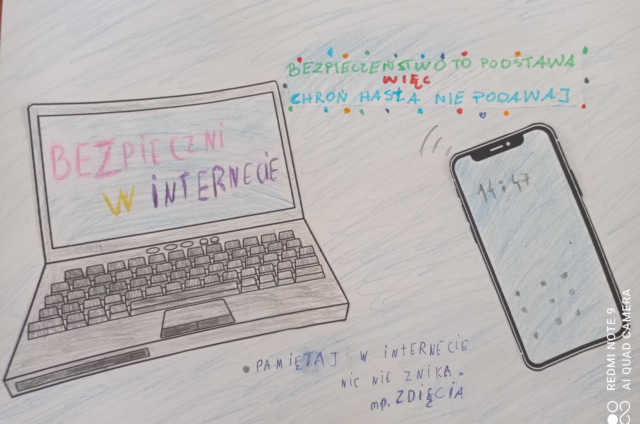 BEZPIECZEŃSTWO TO PODSTAWA
WIĘC
CHROŃ HASŁA NIE PODAWAJ
BEZPIECZNI
W INTERNECIE
14:47
• PAMIĘTAJ W INTERNECIE
NIC NIE ZNIKA.
mp. ZDIĘCIA
REDMI NOTE 9
AI QUAD CAMERA